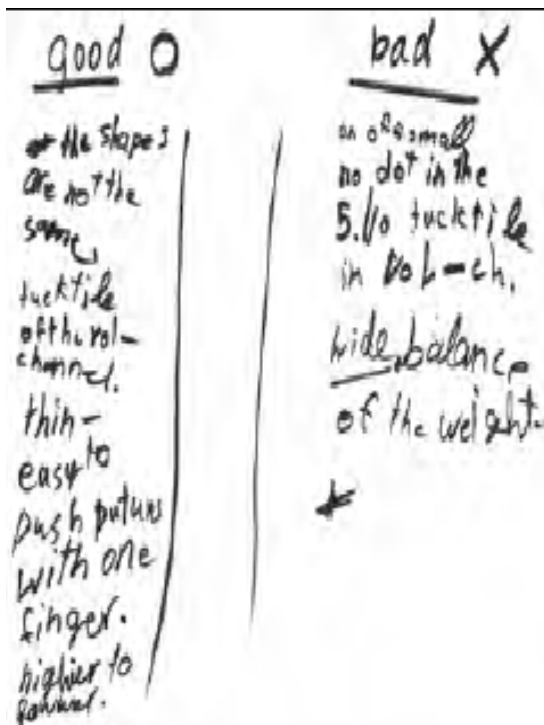 good O
the shapes
are not the
same
tucktile
of the vol-
channel.
thin-
easy to
push putuns
with one
finger.
higher to
bad X
small
no dot in the
5. No tucktile
in vol-ch.
wide, balance
of the weight.